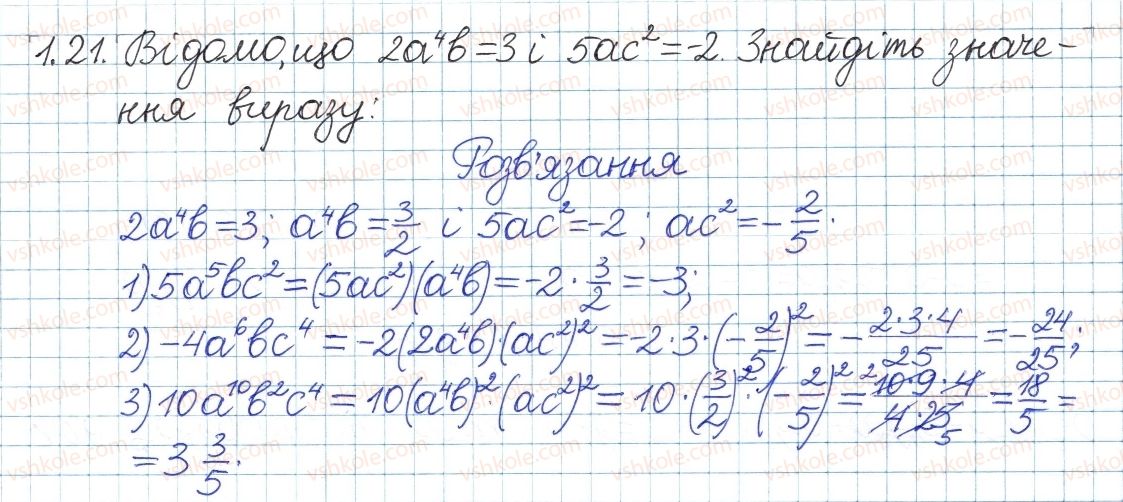 1.21. Відомо, що 2a⁴b=3 і 5ac²=-2. Знайдіть значе-
ння виразу:
Розв'язання
2a⁴b=3; a⁴b=3/2 і 5ac²=-2; ac²=-2/5.
1) 5a⁵bc²=(5ac²)(a⁴b)=-2·3/2=-3;
2) -4a⁶bc⁴=-2(2a⁴b)·(ac²)²=-2·3·(-2/5)²=-2·3·4/25=-24/25;
3) 10a¹⁰b²c⁴=10(a⁴b)²·(ac²)²=10·(3/2)²·(-2/5)²=10·9·4/4·25=18/5=
=3 3/5.